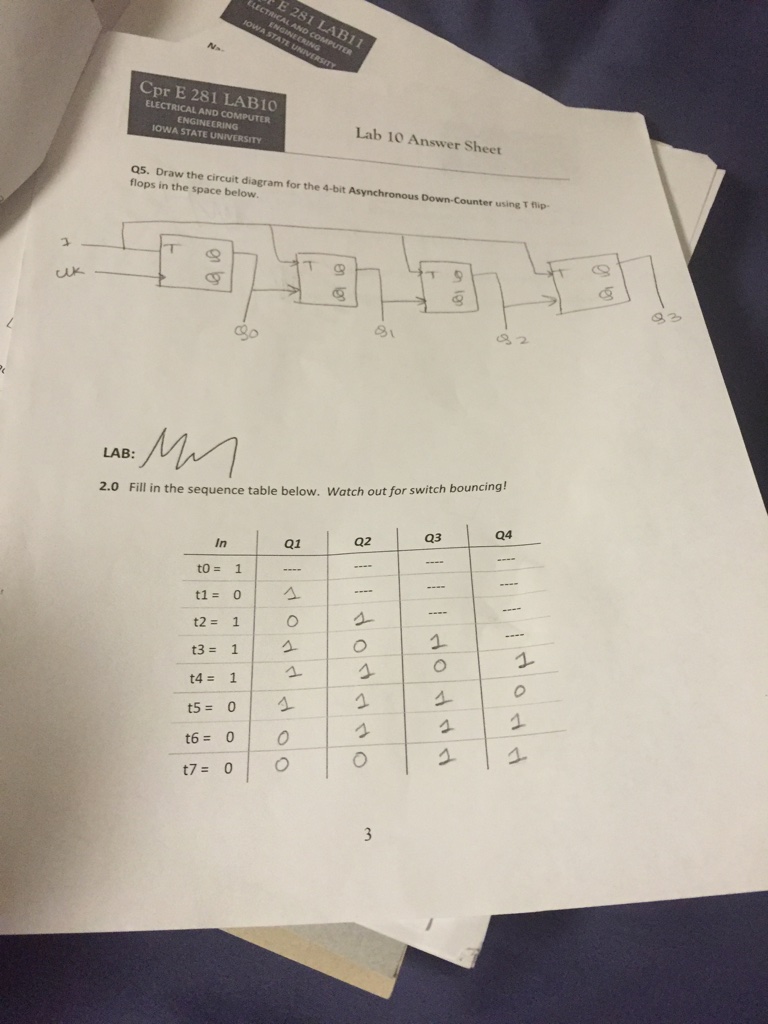 E 281 LAB11
ELECTRICAL AND COMPUTER
ENGINEERING
IOWA STATE UNIVERSITY
Cpr E 281 LAB10
ELECTRICAL AND COMPUTER
ENGINEERING
IOWA STATE UNIVERSITY
Lab 10 Answer Sheet
Q5. Draw the circuit diagram for the 4-bit Asynchronous Down-Counter using T flip-
flops in the space below.
1 T Q T Q T Q T Q
clk Q̅ Q̅ Q̅ Q̅
Q0 Q1 Q2 Q3
LAB:
2.0 Fill in the sequence table below. Watch out for switch bouncing!
In Q1 Q2 Q3 Q4
t0 = 1 ---- ---- ---- ----
t1 = 0 1 ---- ---- ----
t2 = 1 0 1 ---- ----
t3 = 1 1 0 1 ----
t4 = 1 1 1 0 1
t5 = 0 1 1 1 0
t6 = 0 0 1 1 1
t7 = 0 0 0 1 1
3